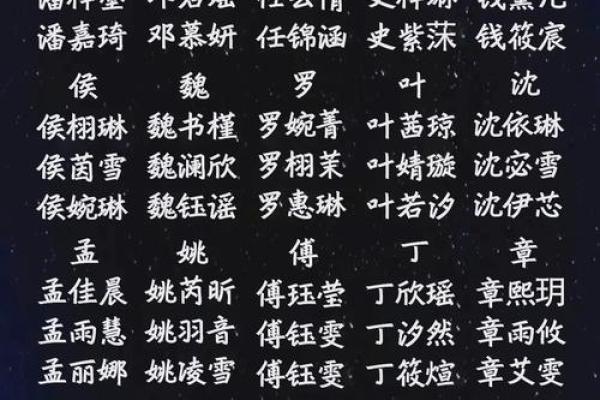 潘嘉琦 邓慕妍 任锦涵 史紫莯 钱筱宸
侯 魏 罗 叶 沈
侯栩琳 魏书槿 罗婉菁 叶茜琼 沈依琳
侯茵雪 魏澜欣 罗栩茉 叶婧璇 沈宓雪
侯婉琳 魏钰谣 罗惠琳 叶若汐 沈伊芯
孟 姚 傅 丁 章
孟佳晨 姚芮昕 傅珏莹 丁欣瑶 章熙玥
孟雨慧 姚羽音 傅钰雯 丁汐然 章雨攸
孟丽娜 姚凌雪 傅钰雯 丁筱煊 章艾雯